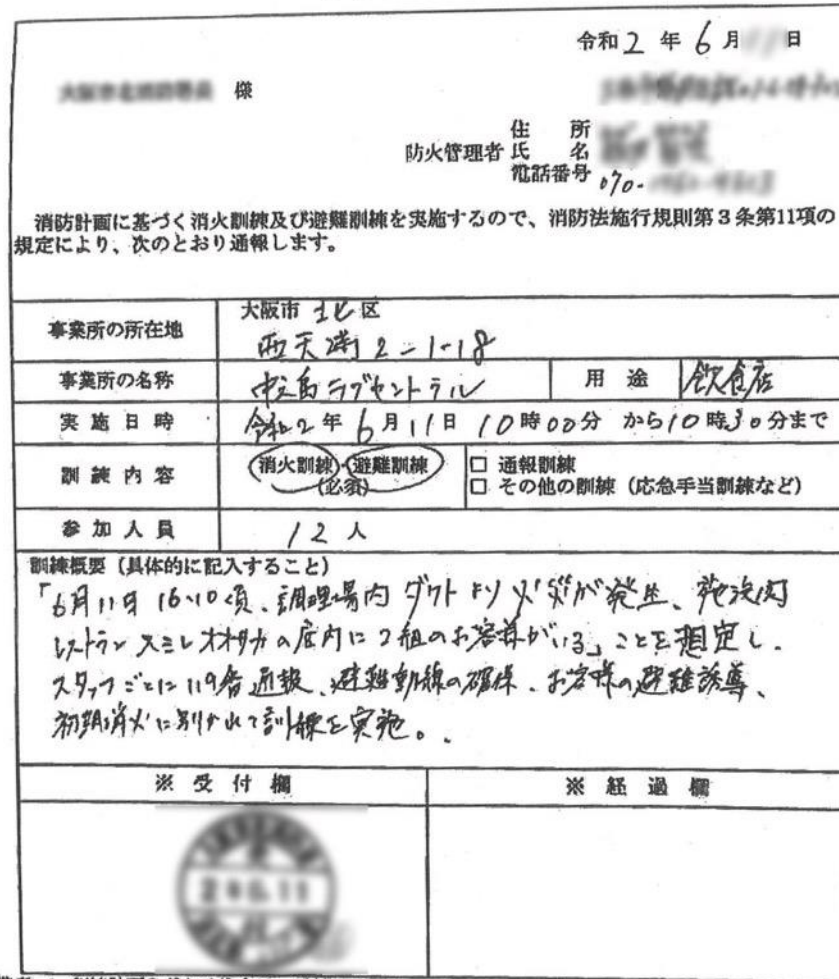 令和2年6月 日
様
住所
防火管理者 氏名
電話番号 070-
消防計画に基づく消火訓練及び避難訓練を実施するので、消防法施行規則第3条第11項の
規定により、次のとおり通報します。
事業所の所在地 大阪市 北区
西天満2-1-18
事業所の名称 中之島ラブセントラル 用途 飲食店
実施日時 令和2年6月11日10時00分から10時30分まで
訓練内容 消火訓練・避難訓練 (必須) □ 通報訓練
□ その他の訓練(応急手当訓練など)
参加人員 12人
訓練概要(具体的に記入すること)
「6月11日 10:10頃、調理場内ダクトより火災が発生、施設内
レストラン スミレオオサカの店内に2組のお客様がいる」ことを想定し、
スタッフごとに119番通報、避難動線の確保、お客様の避難誘導、
初期消火に別かれて訓練を実施。
※受付欄 ※経過欄
2 6.11